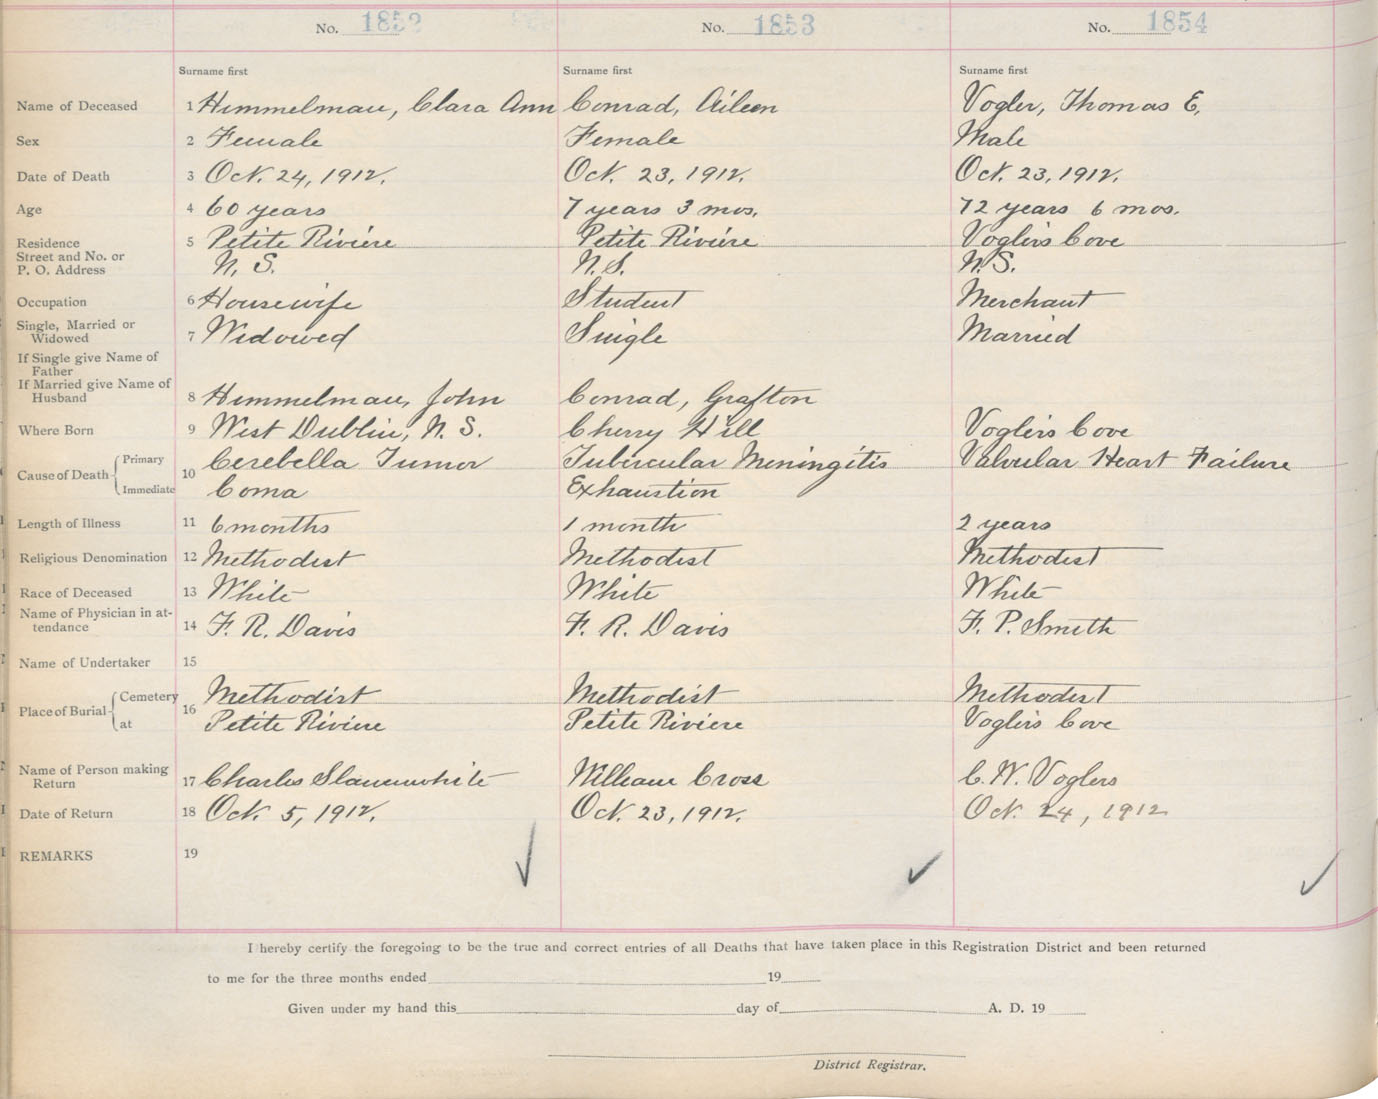 No. 1852 No. 1853 No. 1854
Surname first Surname first Surname first
Name of Deceased 1 Himmelman, Clara Ann Conrad, Aileen Vogler, Thomas E.
Sex 2 Female Female Male
Date of Death 3 Oct. 24, 1912. Oct. 23, 1912. Oct. 23, 1912.
Age 4 60 years 7 years 3 mos. 72 years 6 mos.
Residence 5 Petite Rivière Petite Rivière Voglers Cove
Street and No. or
P. O. Address N. S. N. S. N. S.
Occupation 6 Housewife Student Merchant
Single, Married or
Widowed 7 Widowed Single Married
If Single give Name of
Father
If Married give Name of
Husband 8 Himmelman, John Conrad, Grafton
Where Born 9 West Dublin, N. S. Cherry Hill Voglers Cove
Cause of Death Primary 10 Cerebella Tumor Tubercular Meningitis Valvular Heart Failure
Immediate Coma Exhaustion
Length of Illness 11 6 months 1 month 2 years
Religious Denomination 12 Methodist Methodist Methodist
Race of Deceased 13 White White White
Name of Physician in at-
tendance 14 F. R. Davis F. R. Davis F. P. Smith
Name of Undertaker 15
Place of Burial Cemetery 16 Methodist Methodist Methodist
at Petite Riviere Petite Riviere Voglers Cove
Name of Person making
Return 17 Charles Slaunwhite William Cross C. W. Voglers
Date of Return 18 Oct. 5, 1912. Oct. 23, 1912. Oct. 24, 1912
REMARKS 19
I hereby certify the foregoing to be the true and correct entries of all Deaths that have taken place in this Registration District and been returned
to me for the three months ended 19
Given under my hand this day of A. D. 19
District Registrar.